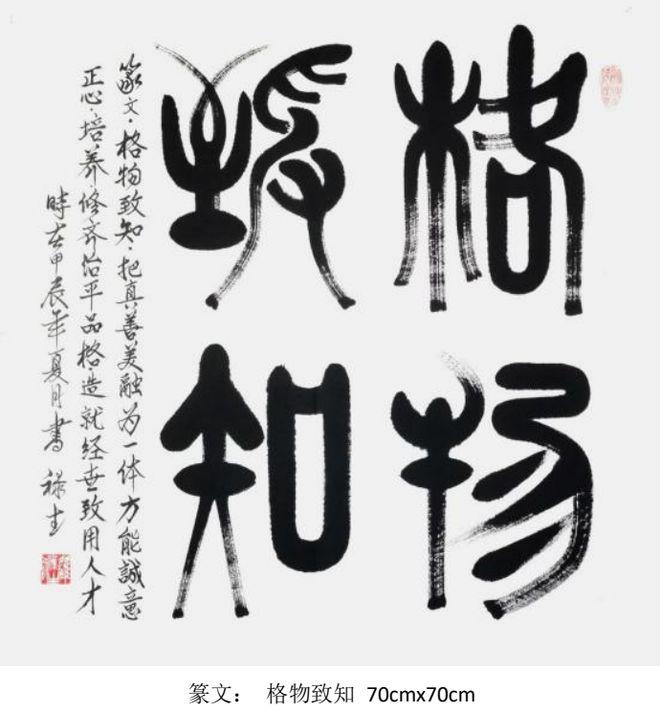 格物
致知
篆文·格物致知·把真善美融为一体方能誠意
正心·培养修齐治平品格·造就经世致用人才
時在甲辰年夏月書 禄
篆文： 格物致知 70cmx70cm